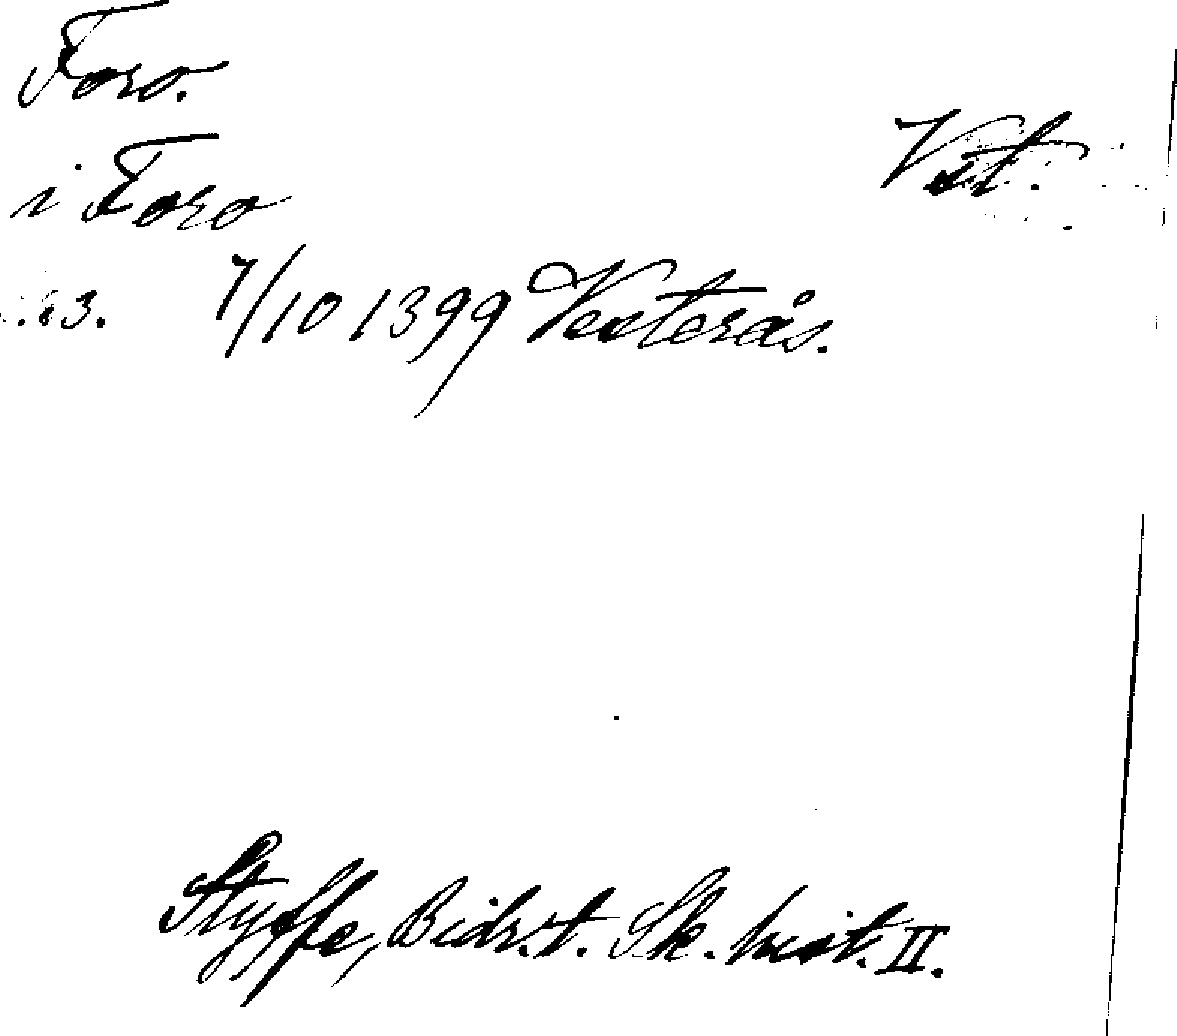 Foro.
Vst.
i Foro
3. 7/10 1399 Vesterås.
Styffe, Bidr. t. Sk. hist. II.